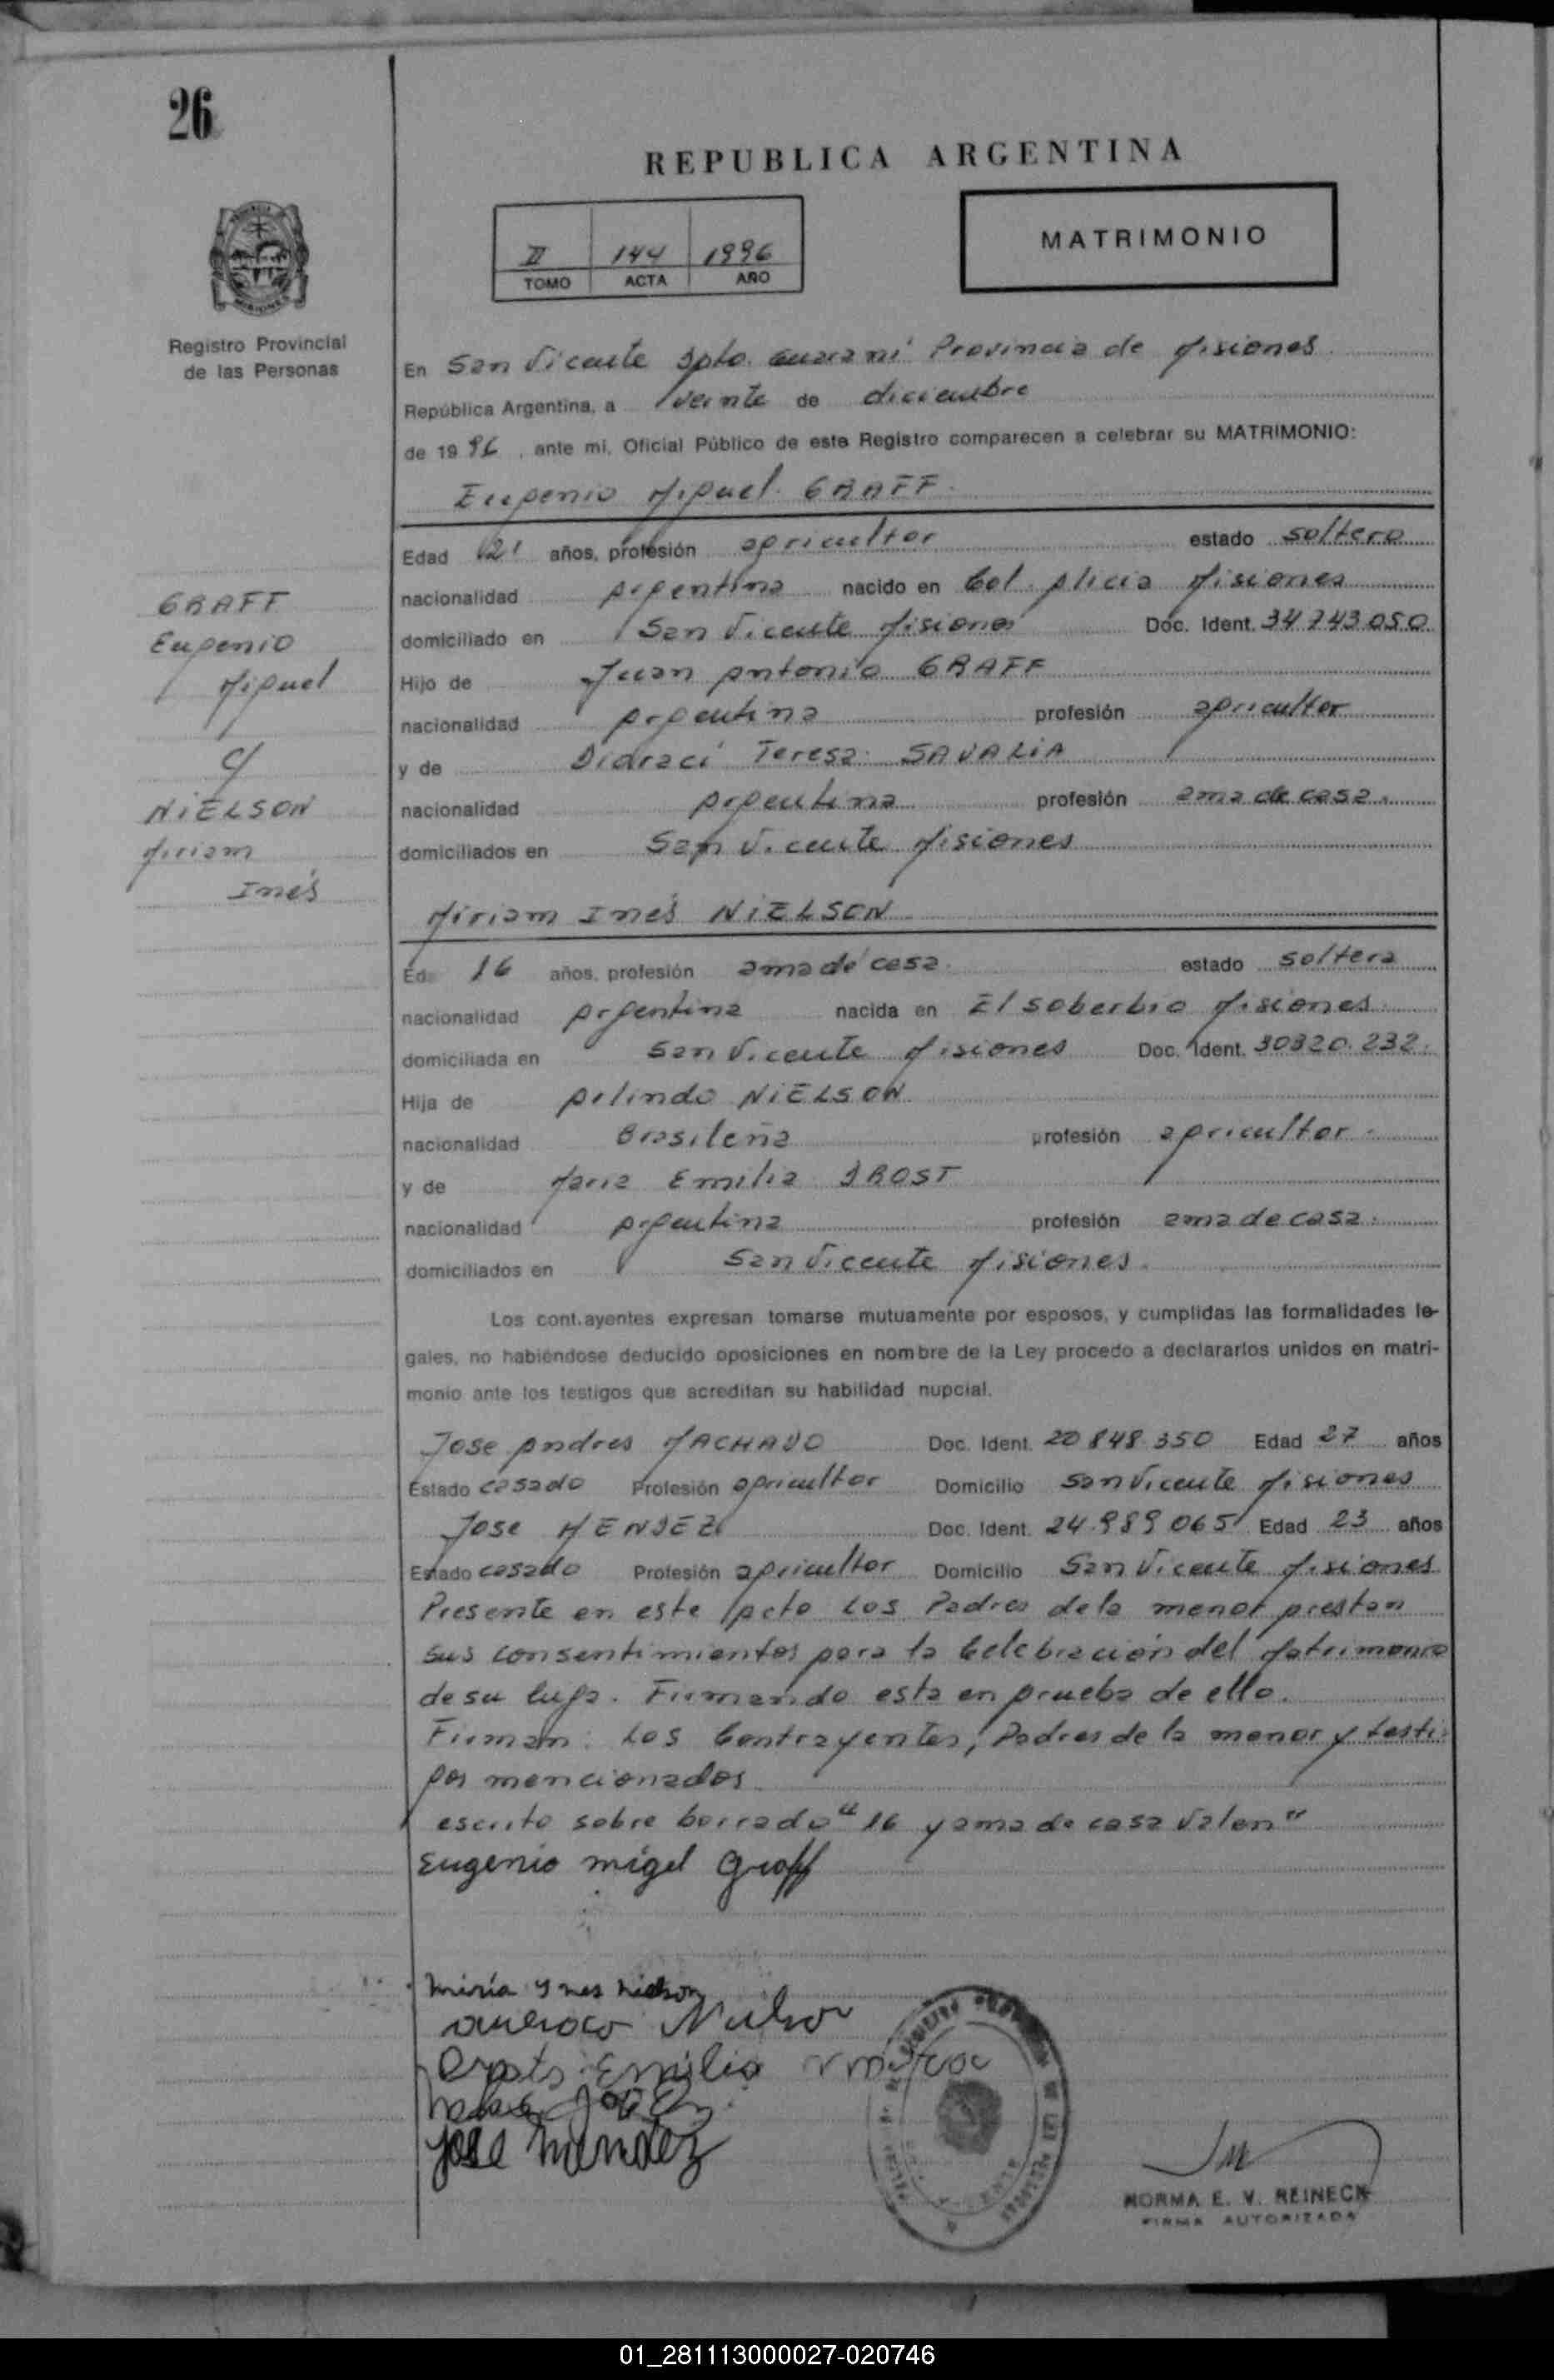 26
REPUBLICA ARGENTINA
II 144 1996
TOMO ACTA AÑO
MATRIMONIO
Registro Provincial
de las Personas
En San Vicente Dpto. Guaraní Provincia de Misiones
República Argentina, a veinte de diciembre
de 1996, ante mi, Oficial Público de este Registro comparecen a celebrar su MATRIMONIO:
Eugenio Miguel GRAFF
Edad 21 años, profesión agricultor estado soltero
nacionalidad Argentina nacido en Col. Alicia Misiones
domiciliado en San Vicente Misiones Doc. Ident. 34.743.050
Hijo de Juan Antonio GRAFF
nacionalidad Argentina profesión agricultor
y de Teresa
nacionalidad Argentina profesión ama de casa.
domiciliados en San Vicente Misiones
GRAFF
Eugenio
Miguel
c/
NIELSON
Miriam
Inés
Miriam Inés NIELSON
Ed 16 años, profesión ama de casa. estado soltera
nacionalidad Argentina nacida en El Soberbio Misiones
domiciliada en San Vicente Misiones Doc. Ident. 30320.232.
Hija de Arlindo NIELSON
nacionalidad Brasileña profesión agricultor.
y de Maria Emilia DROST
nacionalidad Argentina profesión ama de casa.
domiciliados en San Vicente Misiones.
Los cont.ayentes expresan tomarse mutuamente por esposos, y cumplidas las formalidades le-
gales, no habiéndose deducido oposiciones en nombre de la Ley procedo a declararlos unidos en matri-
monio ante los testigos que acreditan su habilidad nupcial.
Jose Andres MACHADO Doc. Ident. 20.848.350 Edad 27 años
Estado casado Profesión agricultor Domicilio San Vicente Misiones
Jose MENDEZ Doc. Ident. 24.989.065 Edad 23 años
Estado casado Profesión agricultor Domicilio San Vicente Misiones
Presente en este Acto Los Padres de la menor prestan
sus consentimientos para la Celebración del Matrimonio
de su hija. Firmando esta en prueba de ello.
Firman: Los Contrayentes, Padres de la menor y testi-
gos mencionados
escrito sobre borrado "16 y ama de casa Valen"
Eugenio migel Graff
miria ynes nielson
Emilia
Jose Mendez
NORMA E. V. REINECK
FIRMA AUTORIZADA
01_281113000027-020746